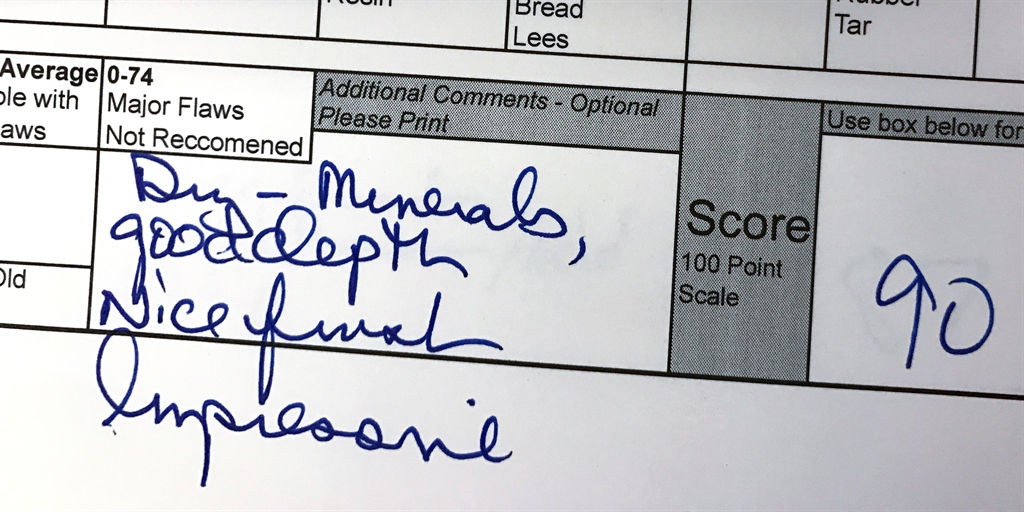 Bread
Lees
Tar
Average
0-74
ple with
Major Flaws
aws
Not Reccomened
Additional Comments - Optional
Please Print
Use box below for
Dry - Minerals,
good depth
Nice finish
Impressive
Old
Score
100 Point
Scale
90